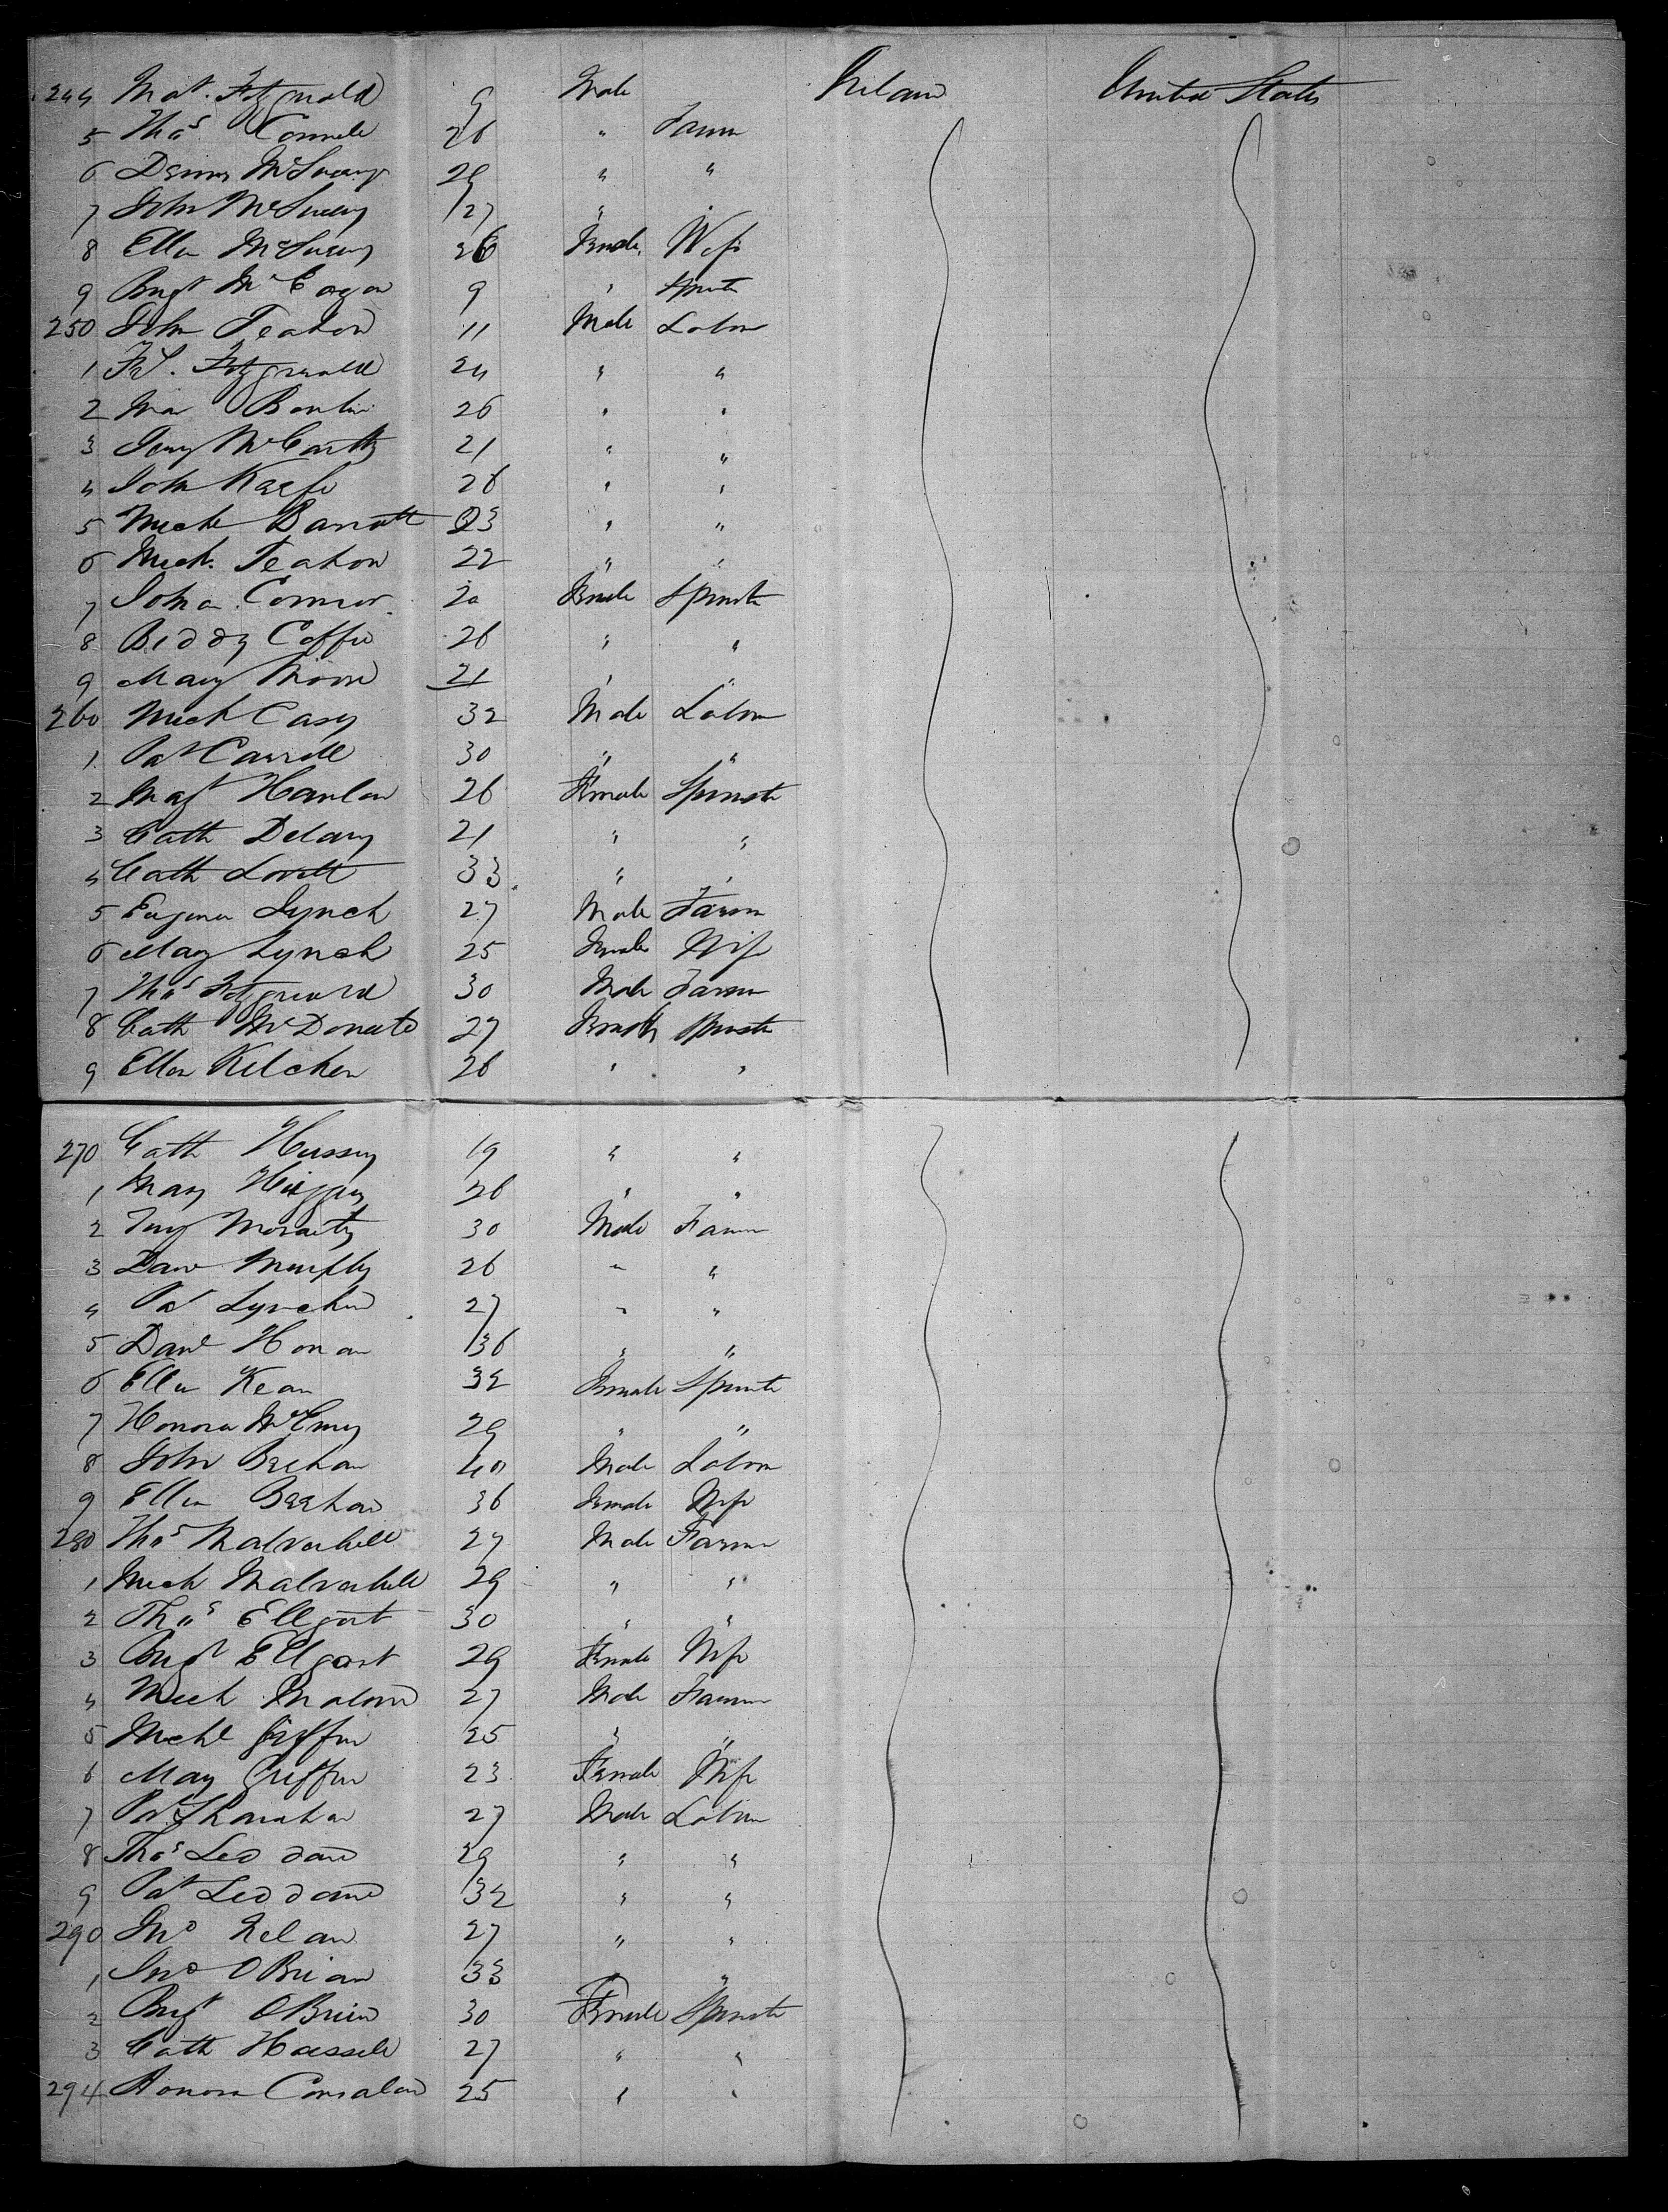 244 Mat. Fitzgerald 9 Male Ireland United States
5 Thos Connell 26 " Farm
6 Dennis McSweeny 29 " "
7 John McSweeny 27 " "
8 Ellen McSweeny 26 Female Wife
9 Brigt 9 " Spinster
250 John Teahon 11 Male Labor
1 Fitzgerald 24 " "
2 26 " "
3 McCarthy 21 " "
4 John Keefe 26 " "
5 Mich Barrett 23 " "
6 Mich. Teahon 22 " "
7 Johna Connor 20 Female Spinster
8 Biddy Coffee 26 " "
9 Mary Moore 21 " "
260 Mich Casey 32 Male Labor
1 Pat Carroll 30 " "
2 Magt Hanlon 26 Female Spinster
3 Cath Delany 21 " "
4 Cath Lovett 33 " "
5 Eugene Lynch 27 Male Farm
6 Mary Lynch 25 Female Wife
7 Thos Fitzgerald 30 Male Farm
8 Cath McDonald 27 Female Spinster
9 Ellen 26 " "
270 Cath Hussey 19 " "
1 Mary 26 " "
2 Moriarty 30 Male Farm
3 Dan Murphy 26 " "
4 Pat 27 " "
5 Danl Honan 36 " "
6 Ellen Kean 32 Female Spinster
7 Honora 29 " "
8 John Beehan 40 Male Labor
9 Ellen Beehan 36 Female Wife
280 Thos Malvahill 27 Male Farm
1 Mich Malvahill 29 " "
2 Thos Ellgort 30 " "
3 Brigt Ellgort 29 Female Wife
4 Mich Malone 27 Male Farm
5 Michl Griffin 25 " "
6 Mary Griffin 23 Female Wife
7 Pat Shanahan 27 Male Labor
8 Thos Leddane 29 " "
9 Pat Leddane 32 " "
290 Jno 27 " "
1 Jno OBrian 33 " "
2 Brigt OBrien 30 Female Spinster
3 Cath 27 " "
294 Honora 25 " "